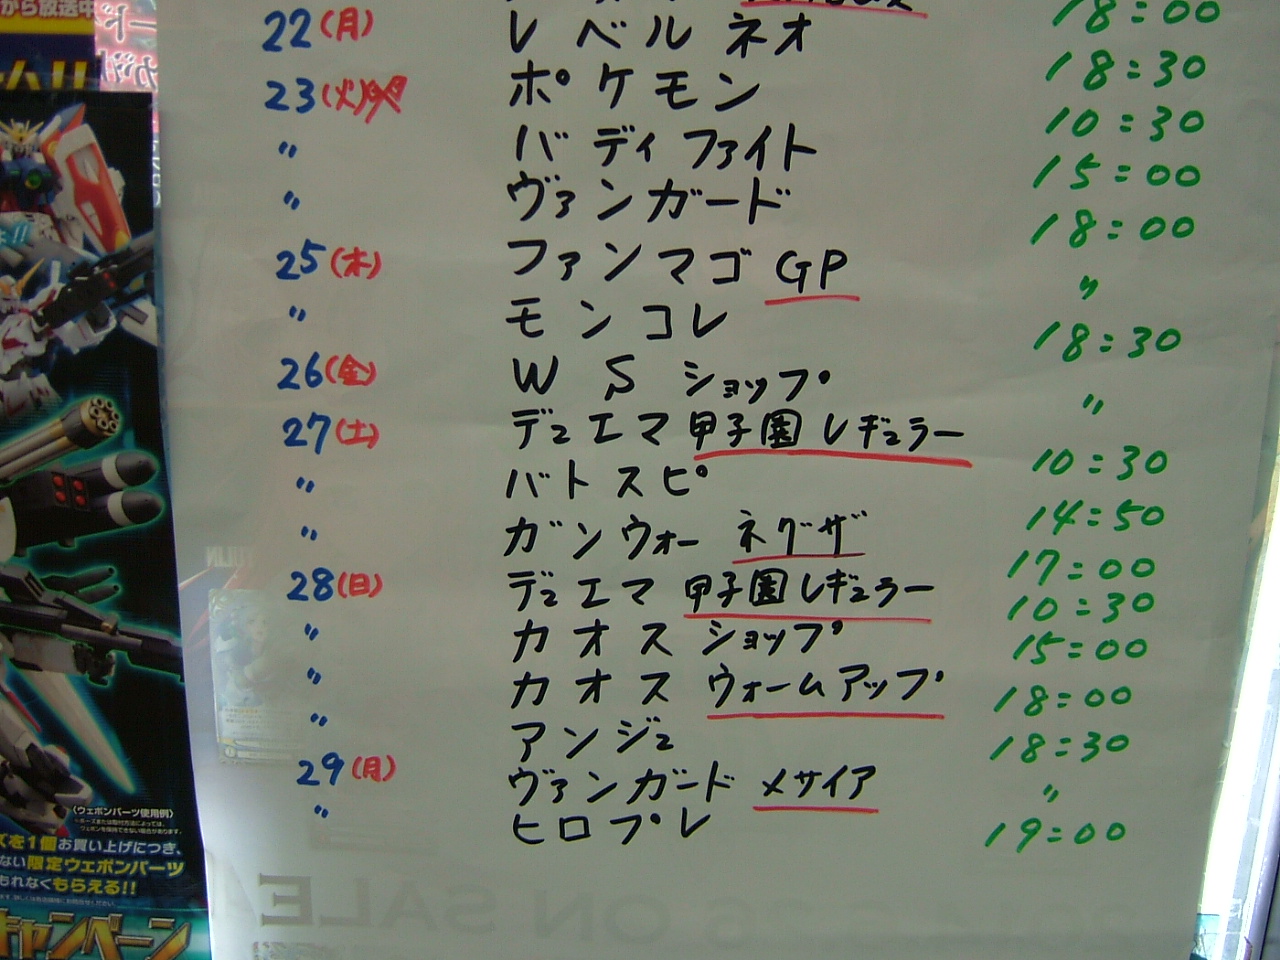 から放送中
18:00
22(月) レベルネオ 18:30
23(火) ポケモン 10:30
〃 バディファイト 15:00
〃 ヴァンガード 18:00
25(木) ファンマゴ GP 〃
〃 モンコレ 18:30
26(金) WS ショップ 〃
27(土) デュエマ 甲子園 レギュラー 10:30
〃 バトスピ 14:50
〃 ガンウォー ネグザ 17:00
28(日) デュエマ 甲子園 レギュラー 10:30
〃 カオス ショップ 15:00
〃 カオス ウォームアップ 18:00
〃 アンジュ 18:30
29(月) ヴァンガード メサイア 〃
〃 ヒロプレ 19:00
〈ウェポンパーツ使用例〉
ズを1個お買い上げにつき、
ない限定ウェポンパーツ
もれなくもらえる!!
キャンペーン
ON SALE